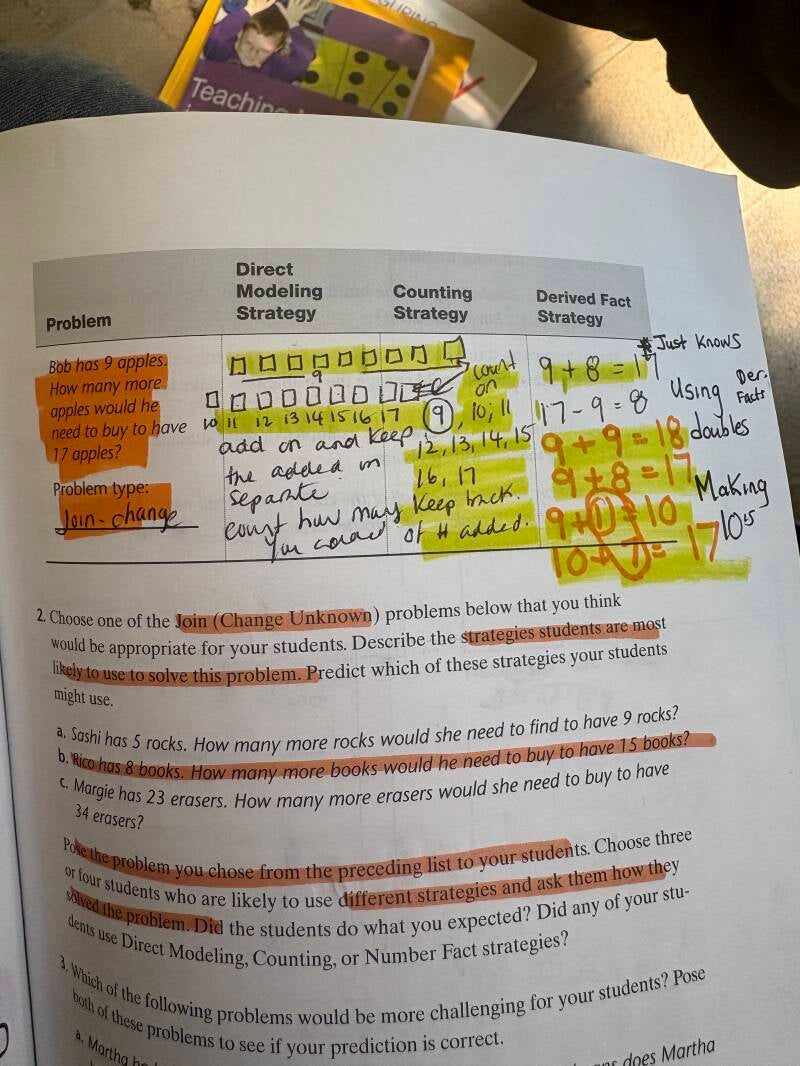 Teaching
Problem
Direct
Modeling
Strategy
Counting
Strategy
Derived Fact
Strategy
Bob has 9 apples.
How many more
apples would he
need to buy to have
17 apples?
Problem type:
Join-change
9
10 11 12 13 14 15 16 17
add on and keep
the added in
separate
count how many
you
count
on
9, 10, 11
12, 13, 14, 15
16, 17
Keep track
of # added.
* Just Knows
9 + 8 = 17
17 - 9 = 8
Using Der. Facts
9 + 9 = 18 doubles
9 + 8 = 17
Making
10's
9 + 1 = 10
10 + 7 = 17
2. Choose one of the Join (Change Unknown) problems below that you think
would be appropriate for your students. Describe the strategies students are most
likely to use to solve this problem. Predict which of these strategies your students
might use.
a. Sashi has 5 rocks. How many more rocks would she need to find to have 9 rocks?
b. Rico has 8 books. How many more books would he need to buy to have 15 books?
c. Margie has 23 erasers. How many more erasers would she need to buy to have
34 erasers?
Pose the problem you chose from the preceding list to your students. Choose three
or four students who are likely to use different strategies and ask them how they
solved the problem. Did the students do what you expected? Did any of your stu-
dents use Direct Modeling, Counting, or Number Fact strategies?
3. Which of the following problems would be more challenging for your students? Pose
both of these problems to see if your prediction is correct.
a. Martha
does Martha